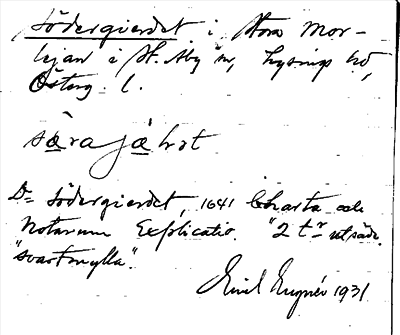 Södergierdet i Stora Mor-
lejan i St. Åby sn, Lysings hd,
Österg. l.
særajæḷṛat
D:o Södergierdet, 1641 Charta och
Notarum Explicatio. "2 t:r utsäde.
"svartmylla".
Emil Eugnér 1931